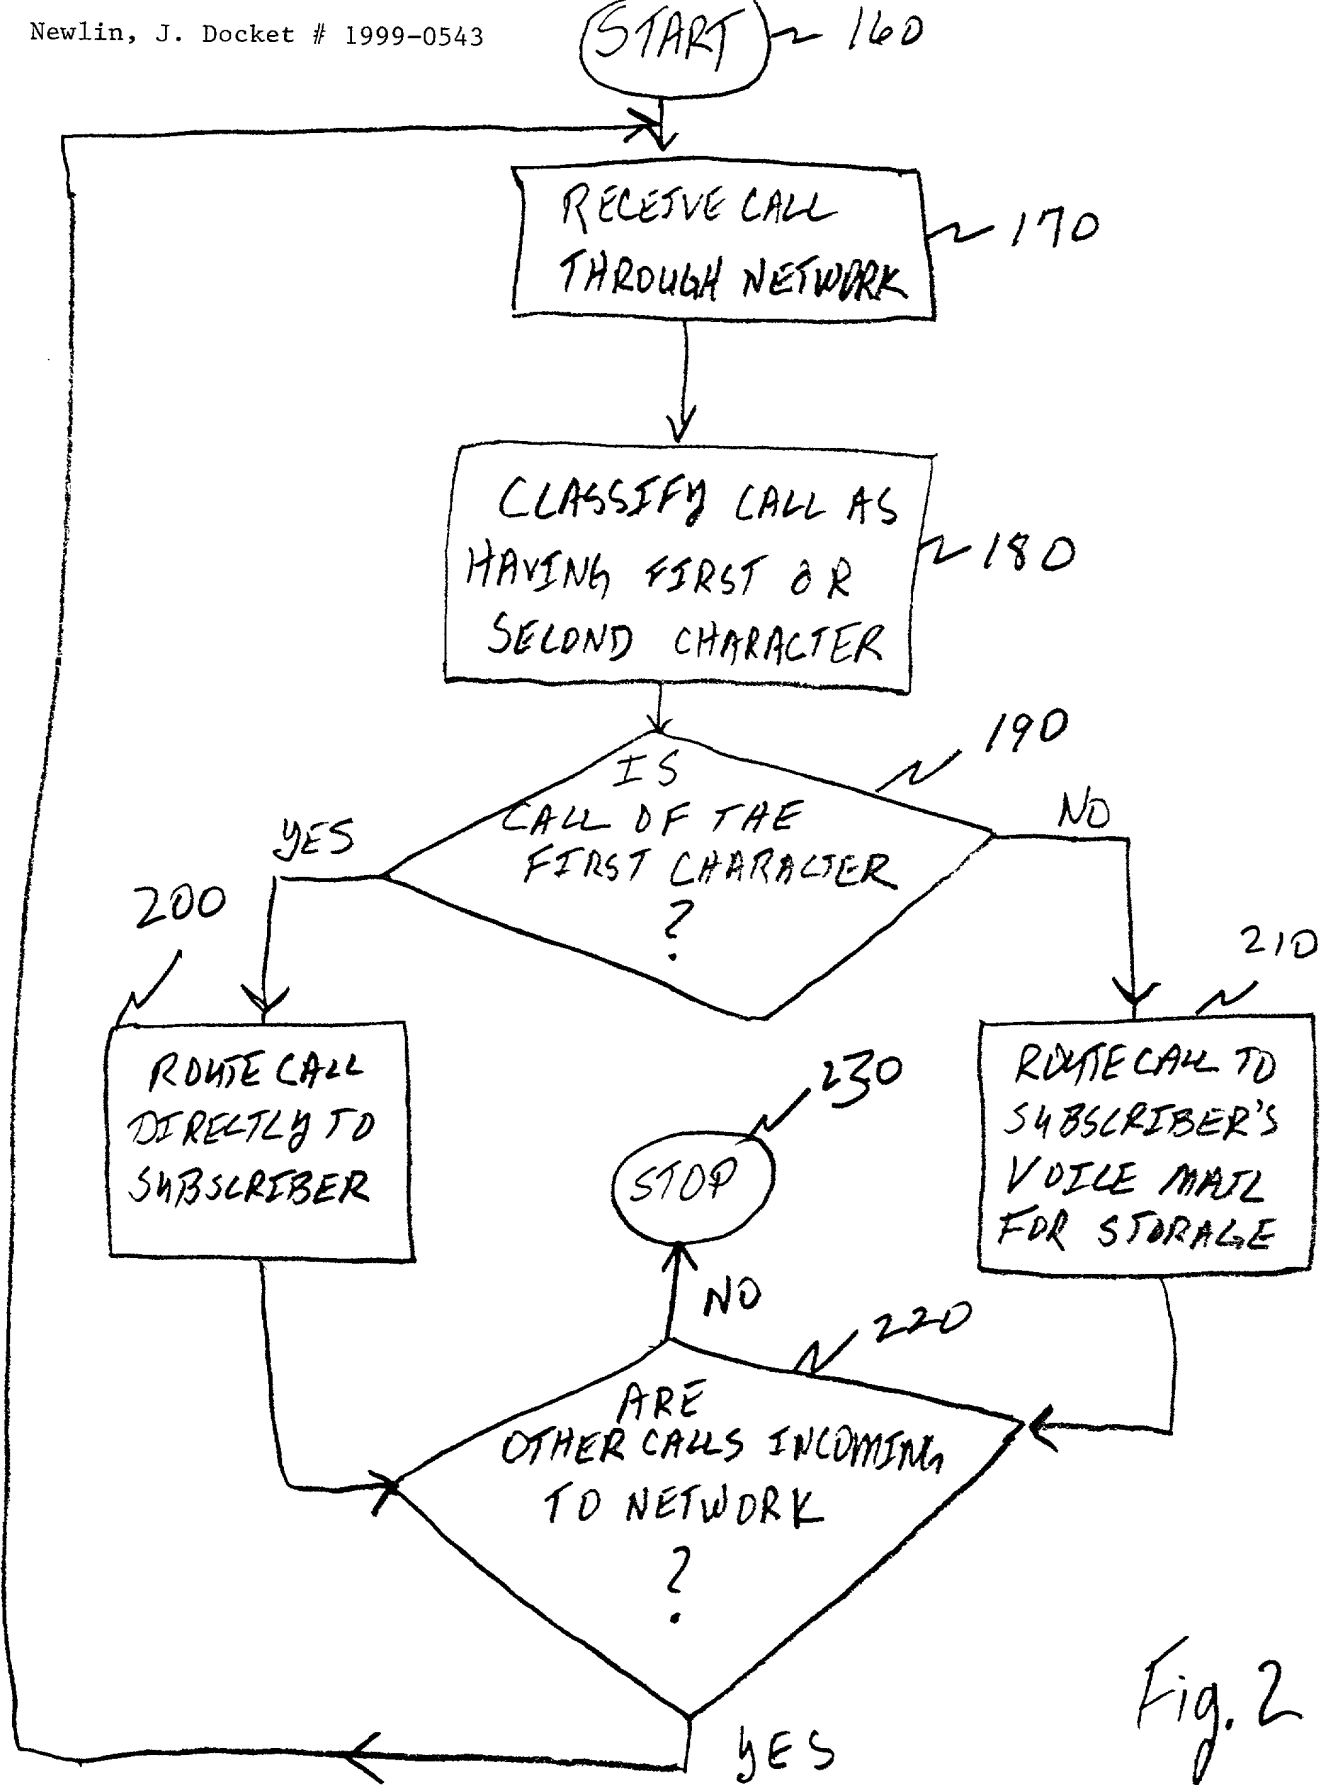 Newlin, J. Docket # 1999-0543
START
160
RECEIVE CALL
THROUGH NETWORK
170
CLASSIFY CALL AS
HAVING FIRST OR
SECOND CHARACTER
180
190
IS
CALL OF THE
FIRST CHARACTER
?
YES
NO
200
210
ROUTE CALL
DIRECTLY TO
SUBSCRIBER
230
STOP
ROUTE CALL TO
SUBSCRIBER'S
VOICE MAIL
FOR STORAGE
NO
220
ARE
OTHER CALLS INCOMING
TO NETWORK
?
YES
Fig. 2